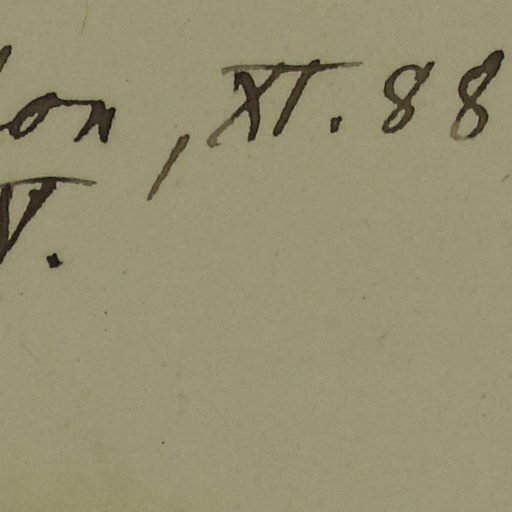 on, XI. 88
V.